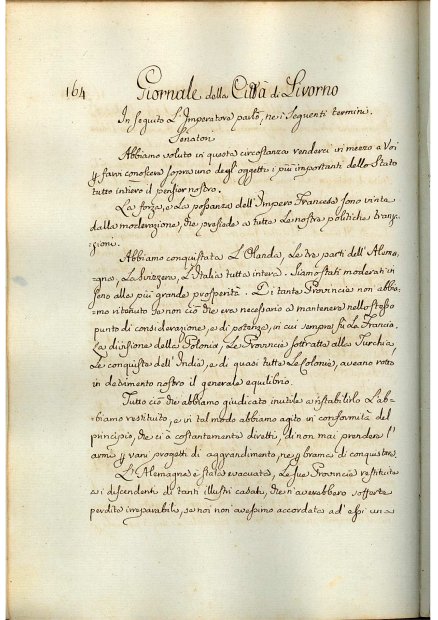 164
Giornale della Città di Livorno
In seguito L'Imperatore parlò, ne i seguenti termini.
Senatori
Abbiamo voluto in questa circostanza renderci in mezzo a Voi
p farvi conoscere sopra uno degl'oggetti i più importanti dello Stato
tutto intiero il pensier nostro.
La forza, e La possanza dell'Impero Francese sono vinte
dalla moderazione, che presiede a tutte Le nostre politiche transa-
zioni.
Abbiamo conquistata L'Olanda, Le tre parti dell'Alema-
=gna, La Svizzera, L'Italia tutta intera. Siamo stati moderati in
seno alla più grande prosperità. Di tante Provincie non abbia-
=mo ritenuto se non ciò che era necessario a mantenere nello stesso
punto di considerazione, e di potenza, in cui sempre fù La Francia.
La divisione della Polonia, Le Provincie sottratte alla Turchia,
Le conquiste dell'India, e di quasi tutte Le Colonie, aveano rotto
in detrimento nostro il generale equilibrio.
Tutto ciò che abbiamo giudicato inutile a ristabilirlo L'ab-
=biamo restituito, e in tal modo abbiamo agito in conformità del
principio, che ci à costantemente diretti, di non mai prendere l'
armi p vani progetti di aggrandimento, ne p brama di conquistare.
L'Alemagna è stata evacuata, Le sue Provincie restituite
a i descendenti di tanti illustri casati, che n'averebbero sofferte
perdite irreparabili, se noi non avessimo accordata ad essi una